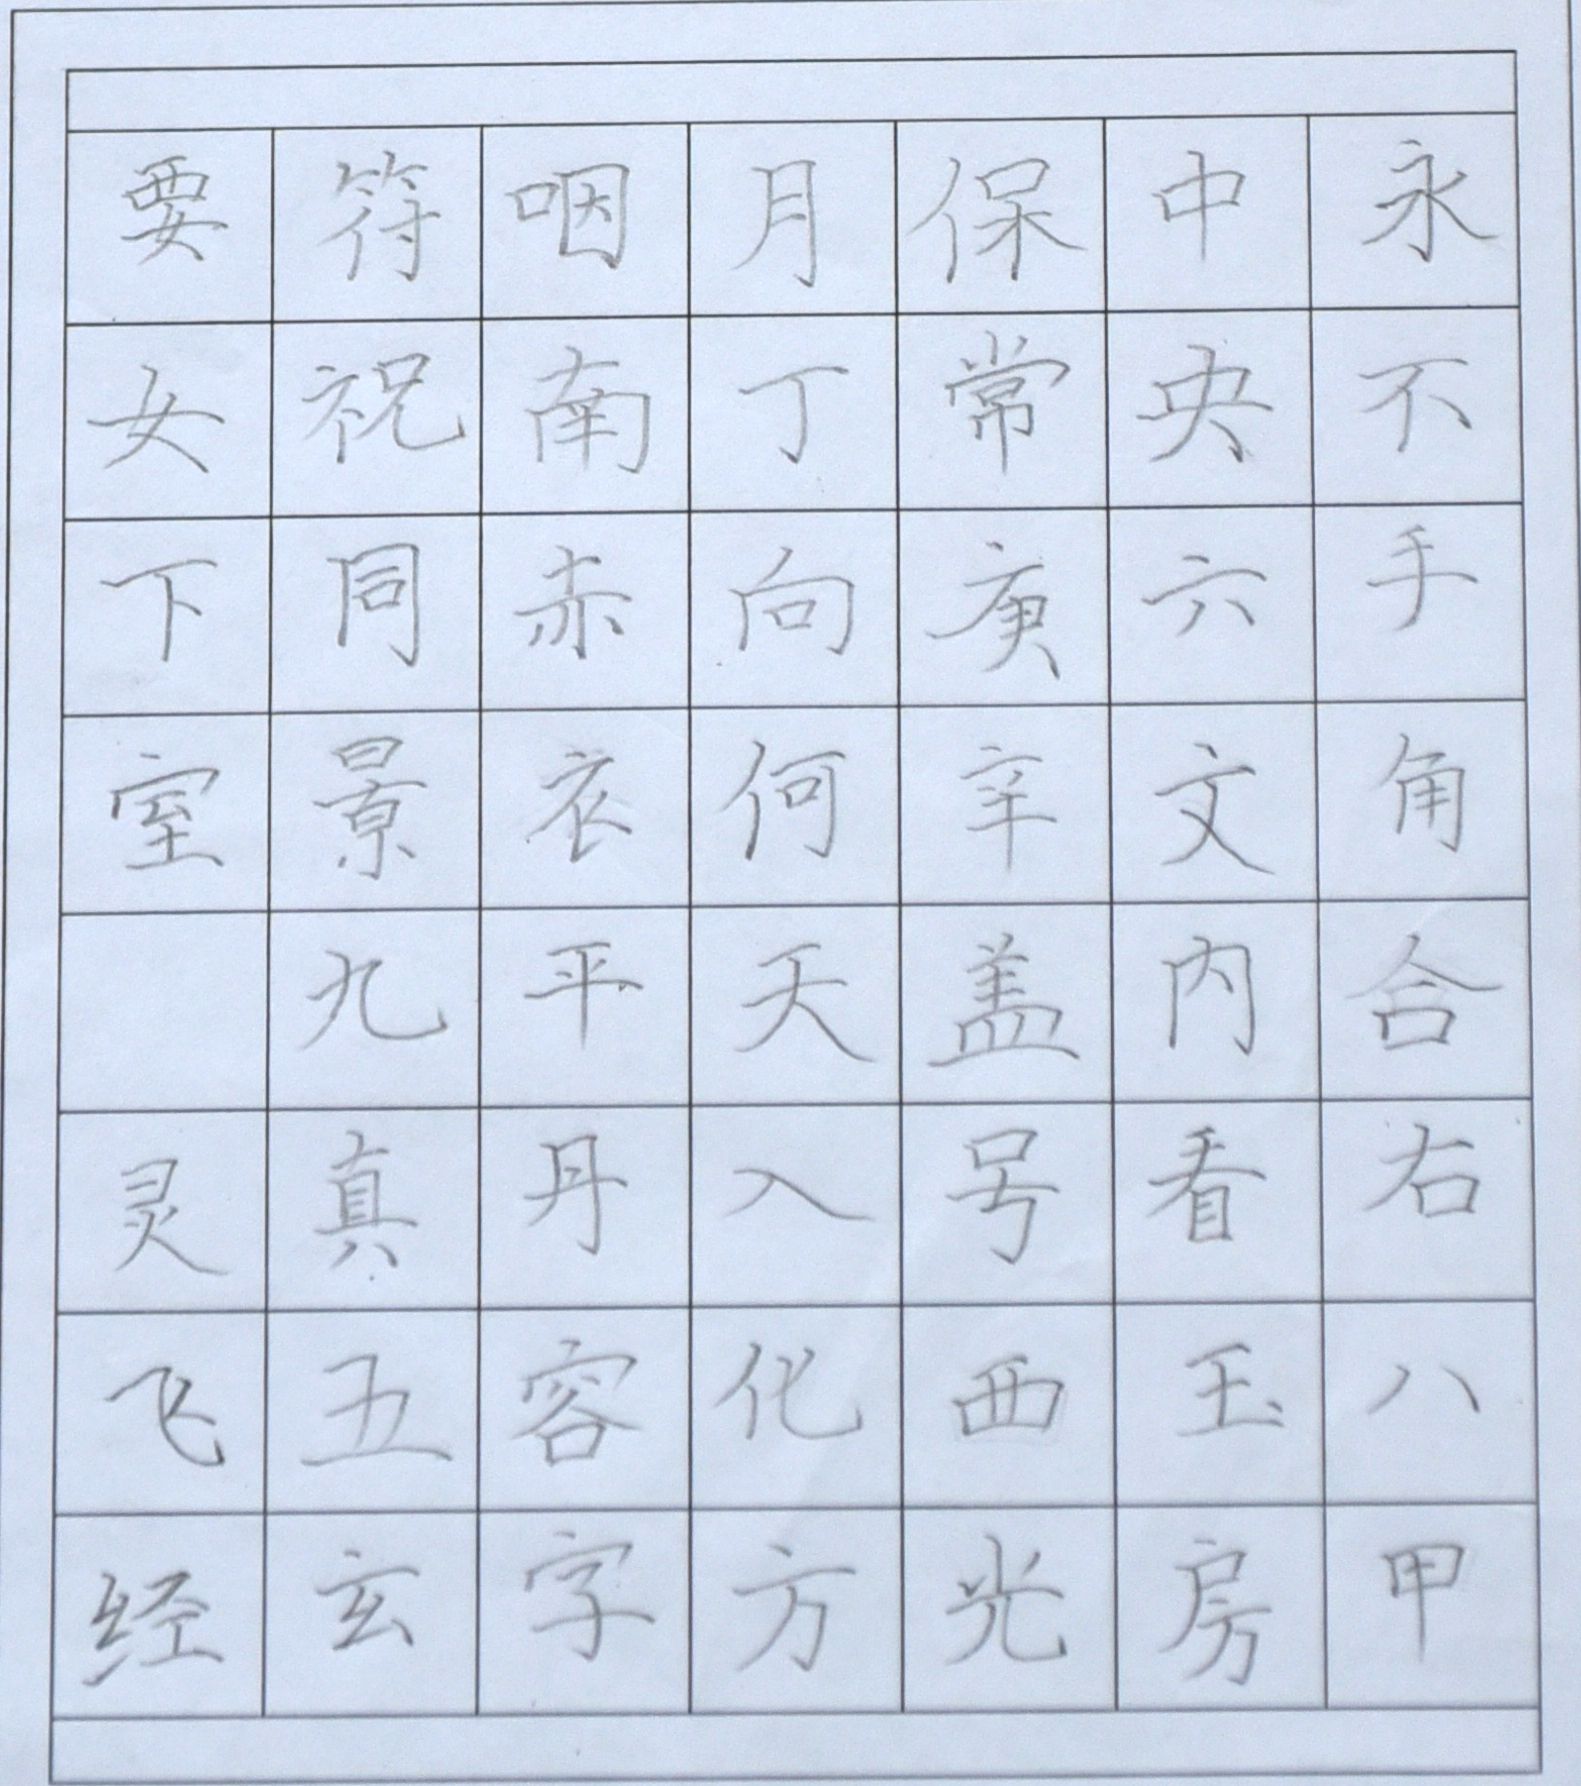 永不手角合右八甲
中央六文内看玉房
保常庚辛盖号西光
月丁向何天入化方
咽南赤衣平丹容字
符祝同景九真五玄
要女下室 灵飞经